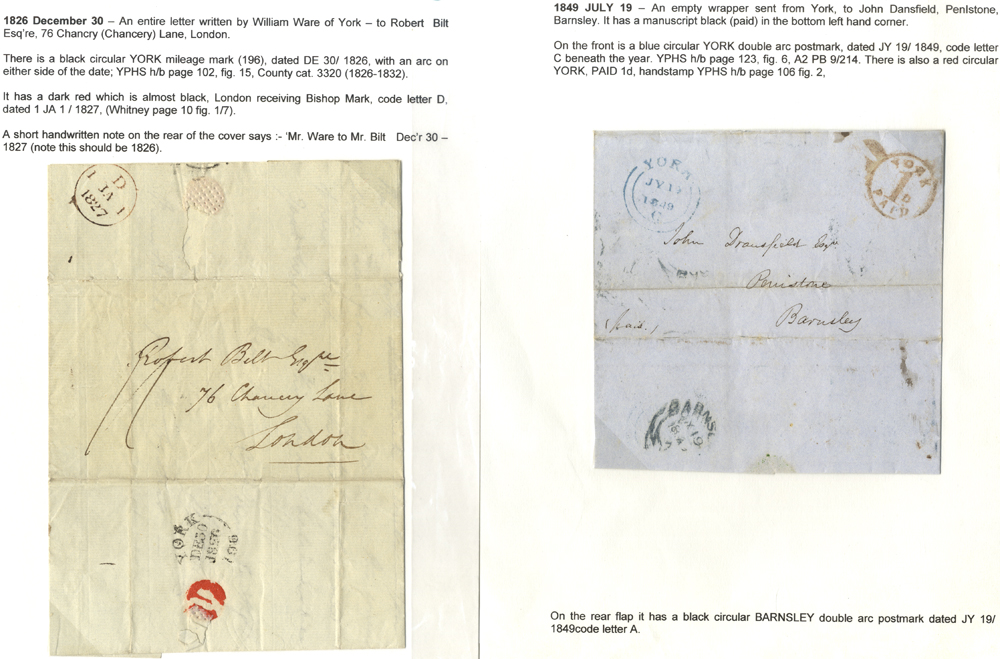 1826 December 30 – An entire letter written by William Ware of York – to Robert Bilt
Esq're, 76 Chancry (Chancery) Lane, London.
There is a black circular YORK mileage mark (196), dated DE 30/ 1826, with an arc on
either side of the date; YPHS h/b page 102, fig. 15, County cat. 3320 (1826-1832).
It has a dark red which is almost black, London receiving Bishop Mark, code letter D,
dated 1 JA 1 / 1827, (Whitney page 10 fig. 1/7).
A short handwritten note on the rear of the cover says :- 'Mr. Ware to Mr. Bilt Dec'r 30 –
1827 (note this should be 1826).
D
1 JA 1
1827
Robert Bilt Esqre
76 Chancry Lane
London
YORK
DE30
196
1849 JULY 19 – An empty wrapper sent from York, to John Dansfield, PenIstone,
Barnsley. It has a manuscript black (paid) in the bottom left hand corner.
On the front is a blue circular YORK double arc postmark, dated JY 19/ 1849, code letter
C beneath the year. YPHS h/b page 123, fig. 6, A2 PB 9/214. There is also a red circular
YORK, PAID 1d, handstamp YPHS h/b page 106 fig. 2,
YORK
JY 19
1849
C
YORK
1D
PAID
John Dransfield Esqr
Penistone
Barnsley
(paid.)
BARNSL
JY 19
On the rear flap it has a black circular BARNSLEY double arc postmark dated JY 19/
1849code letter A.